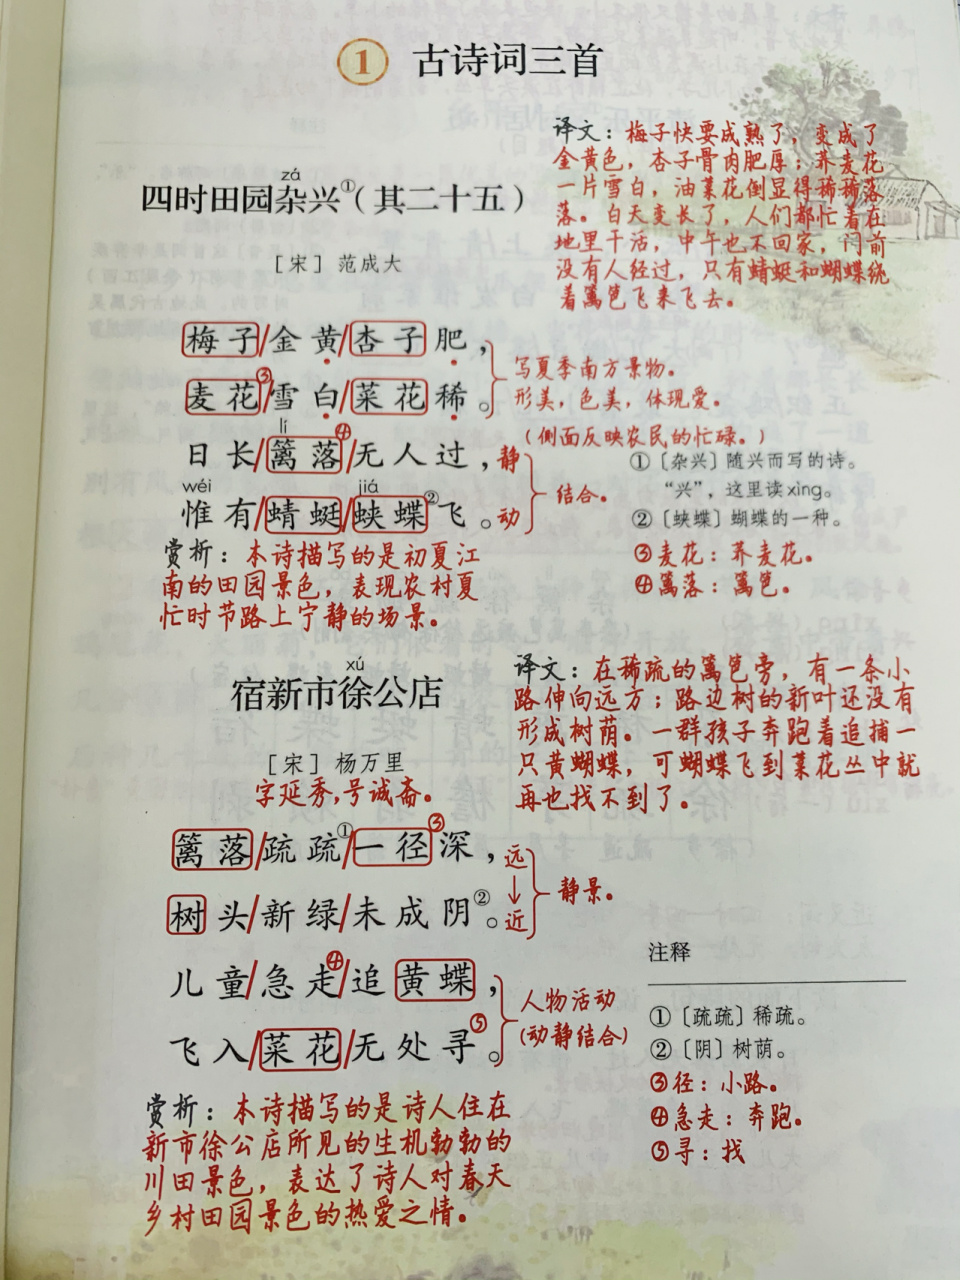 1 古诗词三首
译文：梅子快要成熟了，变成了
金黄色，杏子骨肉肥厚；荞麦花
一片雪白，油菜花倒显得稀稀落
落。白天变长了，人们都忙着在
地里干活，中午也不回家，门前
没有人经过，只有蜻蜓和蝴蝶绕
着篱笆飞来飞去。
zá
四时田园杂兴①（其二十五）
［宋］范成大
梅子/金黄/杏子肥，
麦花③/雪白/菜花稀。
写夏季南方景物。
形美，色美，体现爱。
（侧面反映农民的忙碌。）
lí
日长/篱落④/无人过，静
wéi jiá
惟有/蜻蜓/蛱蝶②飞。动
结合。
①〔杂兴〕随兴而写的诗。
“兴”，这里读xìng。
②〔蛱蝶〕蝴蝶的一种。
③麦花：荞麦花。
④篱落：篱笆。
赏析：本诗描写的是初夏江
南的田园景色，表现农村夏
忙时节路上宁静的场景。
xú
宿新市徐公店
［宋］杨万里
字延秀，号诚斋。
译文：在稀疏的篱笆旁，有一条小
路伸向远方；路边树的新叶还没有
形成树荫。一群孩子奔跑着追捕一
只黄蝴蝶，可蝴蝶飞到菜花丛中就
再也找不到了。
篱落/疏疏①/一径③深，远
树头/新绿/未成阴②。近
静景。
儿童/急走④/追黄蝶，
飞入/菜花/无处寻⑤。
人物活动
(动静结合)
注释
①〔疏疏〕稀疏。
②〔阴〕树荫。
③径：小路。
④急走：奔跑。
⑤寻：找
赏析：本诗描写的是诗人住在
新市徐公店所见的生机勃勃的
川田景色，表达了诗人对春天
乡村田园景色的热爱之情。